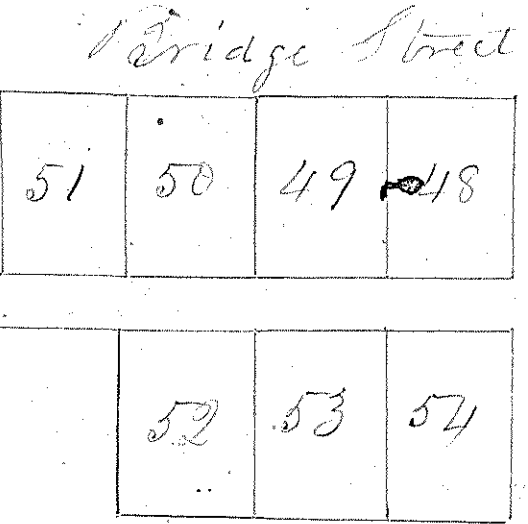 Bridge Street
51 50 49 48
52 53 54